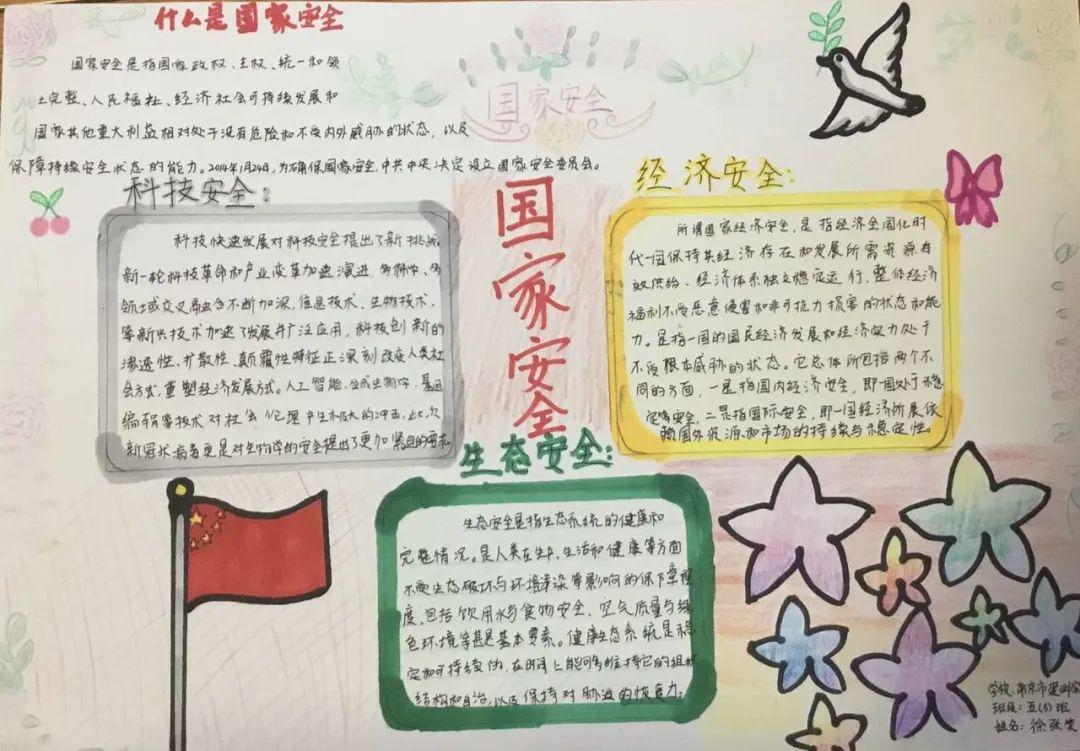 什么是国家安全
国家安全是指国家政权、主权、统一和领
土完整、人民福祉、经济社会可持续发展和
国家其他重大利益相对处于没有危险和不受内外威胁的状态，以及
保障持续安全状态的能力。2014年1月24日，为确保国家安全，中共中央决定设立国家安全委员会。
国家安全
科技安全：
科技快速发展对科技安全提出了新挑战
新一轮科技革命和产业变革加速演进，多
领域或交叉融合不断加深，信息技术、生物技术、
等新兴技术加速了发展并广泛应用，科技创新的
渗透性、扩散性、颠覆性特征正深刻改变人类社
会方式，重塑经济发展方式。人工智能，合成生物学，基因
编辑等技术对社会伦理产生极大的冲击，此次
新冠状病毒更是对生物学的安全提出了更加紧迫的要求
国家安全
经济安全：
所谓国家经济安全，是指经济全国化时
代一国保持其经济存在和发展所需资源有
效供给、经济体系独立稳定运行，整体经济
福利不受恶意侵害和非可抗力损害的状态和能
力。是指一国的国民经济发展和经济实力处于
不受根本威胁的状态。它总体所包括两个不
同的方面，一是指国内经济安全，即一国处于稳
定等安全，二是指国际安全，即一国经济所展依
赖国外资源和市场的持续与稳定性。
生态安全：
生态安全是指生态系统的健康和
完整情况。是人类在生产、生活和健康等方面
不受生态破坏与环境污染等影响的保障程
度，包括饮用水与食物安全，空气质量与绿
色环境等甚是基本要素。健康生态系统是稳
定和可持续的，在时间上能够维持它的组织
结构和自治，以及保持对胁迫的恢复力。
学校：南京市
班级：五(5)班
姓名：徐张笑